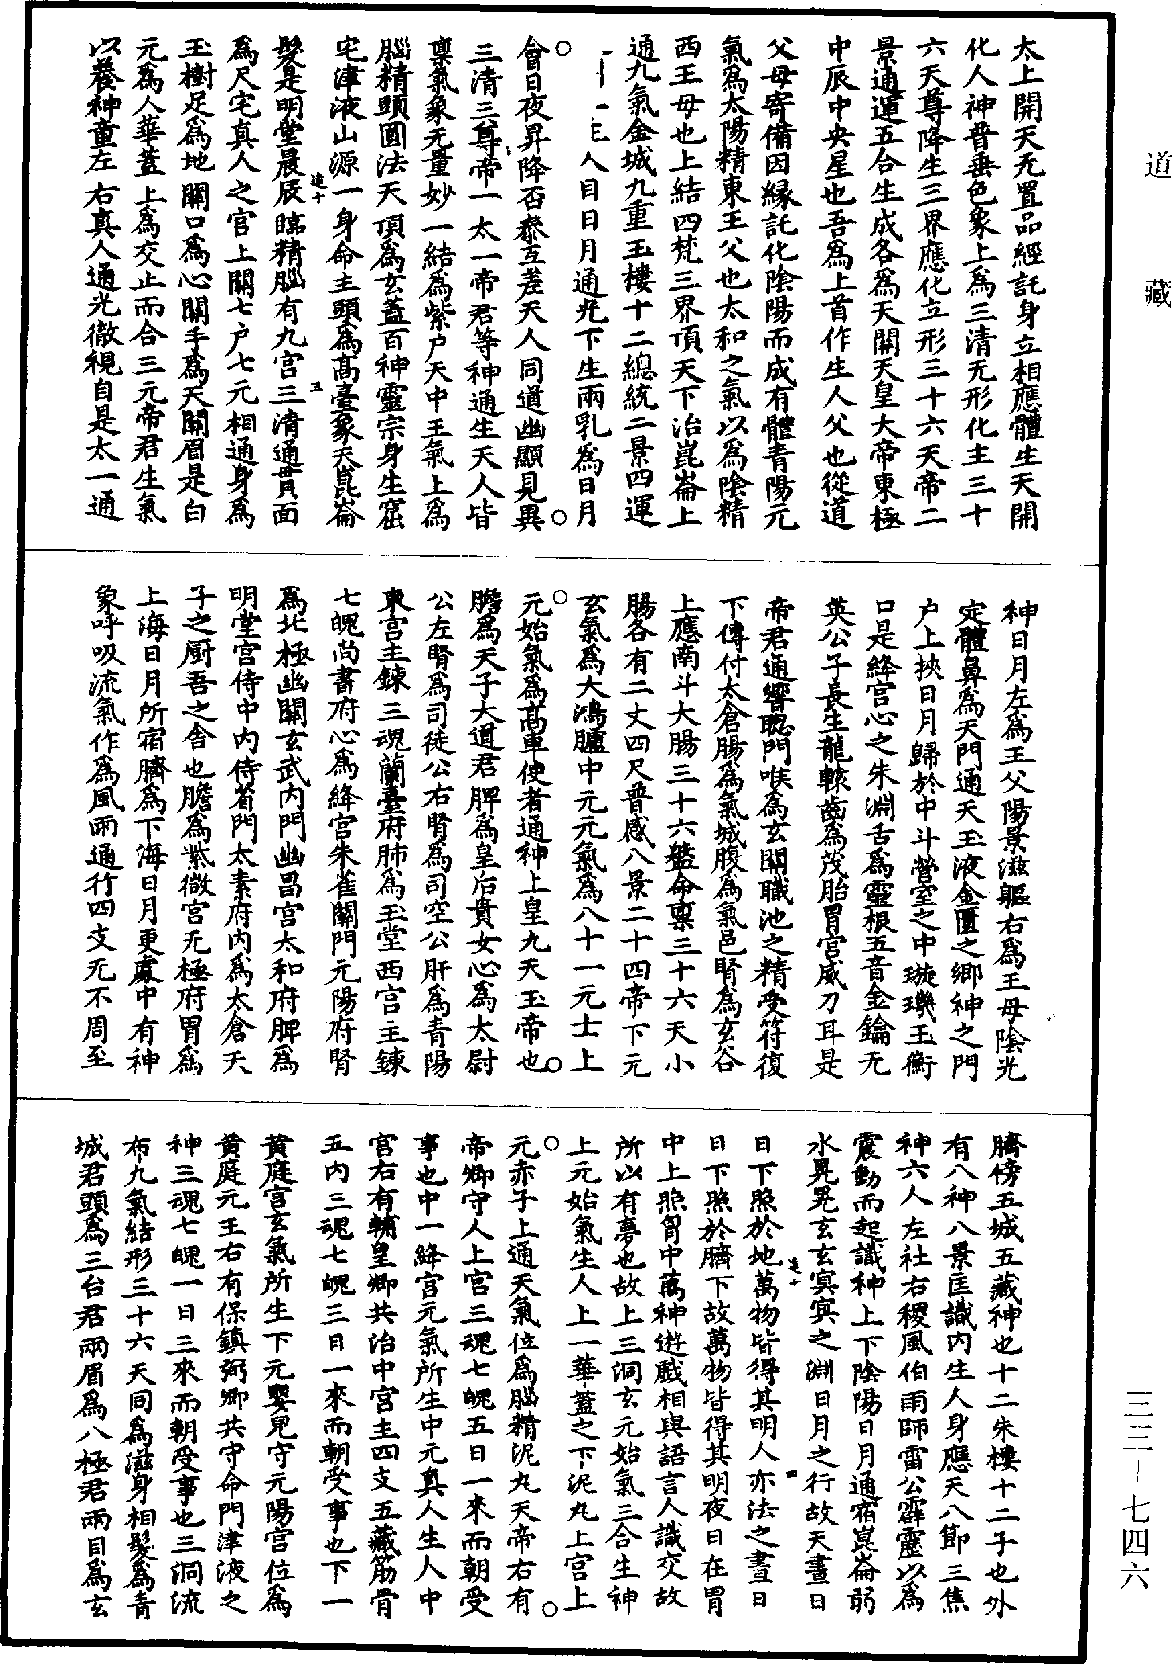 道藏
太上開天无置品經託身立相應體生天開
化人神普垂色象上為三清无形化主三十
六天尊降生三界應化立形三十六天帝二
景通道五合生成各為天關天皇大帝東極
中辰中央星也吾為上首作生人父也從道
父母寄備因緣託化陰陽而成有體青陽元
氣為太陽精東王父也太和之氣以為陰精
西王母也上結四梵三界頂天下治崑崙上
通九氣金城九重玉樓十二總統二景四運
人目日月通光下生兩乳為日月
會日夜昇降否泰互差天人同道幽顯見異
三清三尊帝一太一帝君等神通生天人皆
禀氣象元量妙一結為紫户天中王氣上為
腦精頭圓法天頂為玄蓋百神靈宗身生窟
宅津液山源一身命主頭為髙臺象天崑崙
髮是明堂晨辰臨精腦有九宫三清通貫面
為尺宅真人之官上關七户七元相通身為
玉樹足為地關口為心關手為天關眉是白
元為人華蓋上為交止而合三元帝君生氣
以養神童左右真人通光徹視自是太一通
神日月左為王父陽景滋軀右為王母陰光
定體鼻為天門通天玉液金匱之鄉神之門
户上挾日月歸於中斗營室之中璇璣玉衡
口是絳宫心之朱淵舌為靈根五音金鑰无
英公子長生龍轅齒為茂胎胃宫威刀耳是
帝君通響聰門喉為玄關職池之精受符復
下傳付太倉腸為氣城腹為氣邑腎為玄谷
上應南斗大腸三十六盤命禀三十六天小
腸各有二丈四尺普感八景二十四帝下元
玄氣為大鴻臚中元元氣為八十一元士上
元始氣為髙車使者通神上皇九天玉帝也
膽為天子大道君脾為皇后貴女心為太尉
公左腎為司徒公右腎為司空公肝為青陽
東宫主鍊三魂蘭臺府肺為玉堂西宫主鍊
七魄尚書府心為絳宫朱雀闕門元陽府腎
為北極幽關玄武内門幽昌宫太和府脾為
明堂宫侍中内侍省門太素府内為太倉天
子之厨吾之舍也膽為紫微宫无極府胃為
上海日月所宿臍為下海日月更處中有神
象呼吸流氣作為風雨通行四支无不周至
臍傍五城五藏神也十二朱樓十二子也外
有八神八景匡識内生人身應天八節三焦
神六人左社右稷風伯雨師雷公霹靂以為
震動而起識神上下陰陽日月通宿崑崙弱
水晃晃玄玄冥冥之淵日月之行故天晝日
日下照於地萬物皆得其明人亦法之晝日
日下照於臍下故萬物皆得其明夜日在胃
中上照胷中萬神遊戲相與語言人識交故
所以有夢也故上三洞玄元始氣三合生神
上元始氣生人上一華蓋之下泥丸上宫上
元赤子上通天氣位為腦精泥丸天帝右有
帝卿守人上宫三魂七魄五日一來而朝受
事也中一絳宫元氣所生中元真人生人中
宫右有輔皇卿共治中宫主四支五藏筋骨
五内三魂七魄三日一來而朝受事也下一
黄庭宫玄氣所生下元嬰兒守元陽宫位為
黄庭元王右有保鎮弼卿共守命門津液之
神三魂七魄一日三來而朝受事也三洞流
布九氣結形三十六天同為滋身相髮為青
城君頭為三台君兩眉為八極君兩目為玄
三三－七四六